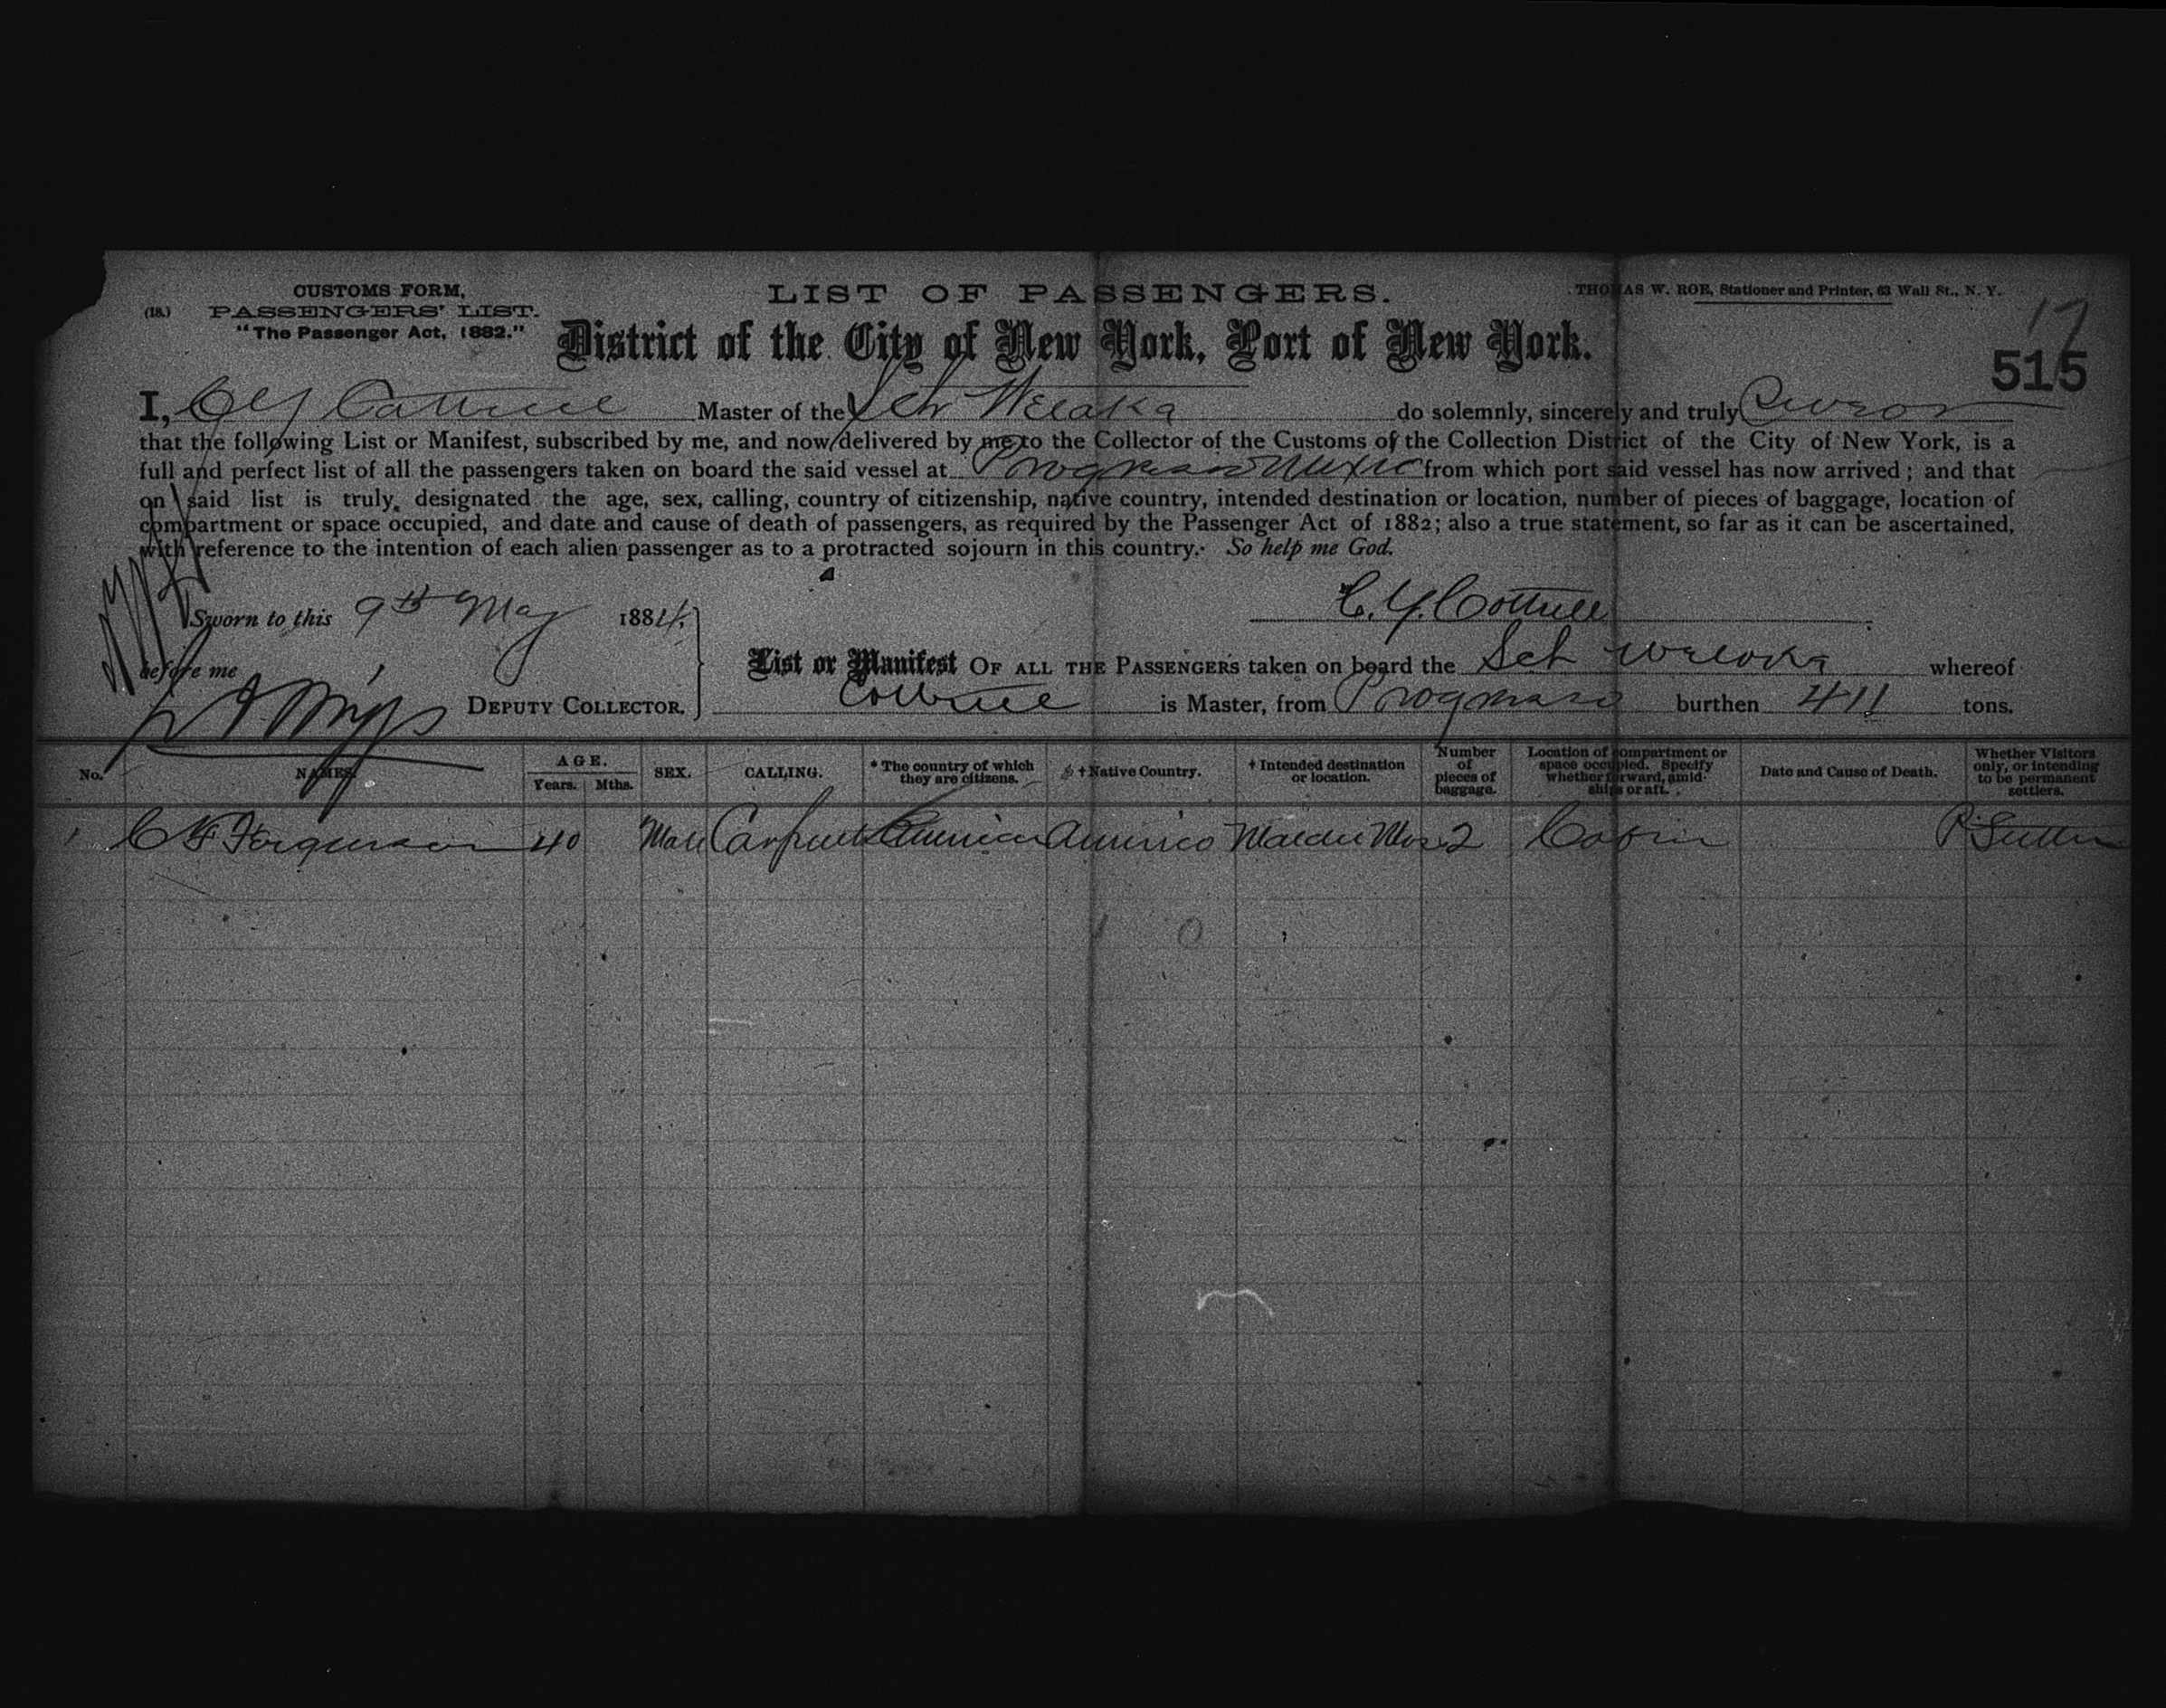 CUSTOMS FORM,
(18.) PASSENGERS' LIST.
"The Passenger Act, 1882."
LIST OF PASSENGERS.
THOMAS W. ROE, Stationer and Printer, 63 Wall St., N. Y.
17
District of the City of New York, Port of New York.
515
I, C Y Cottrell Master of the Schr Welaka do solemnly, sincerely and truly Swear
that the following List or Manifest, subscribed by me, and now delivered by me to the Collector of the Customs of the Collection District of the City of New York, is a
full and perfect list of all the passengers taken on board the said vessel at Progresso Mexico from which port said vessel has now arrived; and that
on said list is truly designated the age, sex, calling, country of citizenship, native country, intended destination or location, number of pieces of baggage, location of
compartment or space occupied, and date and cause of death of passengers, as required by the Passenger Act of 1882; also a true statement, so far as it can be ascertained,
with reference to the intention of each alien passenger as to a protracted sojourn in this country. So help me God.
Sworn to this 9th May 1884,
C. Y. Cottrell
before me
List or Manifest OF ALL THE PASSENGERS taken on board the Sch Welaka whereof
DEPUTY COLLECTOR.
Cottrell is Master, from Progresso burthen 411 tons.
No. NAMES. AGE. Years. Mths. SEX. CALLING. * The country of which they are citizens. † Native Country. † Intended destination or location. Number of pieces of baggage. Location of compartment or space occupied. Specify whether forward, amidships or aft. Date and Cause of Death. Whether Visitors only, or intending to be permanent settlers.
1 C F Ferguson 40 Male Carpenter America America Malden Mass 2 Cabin P. Settler
1 0